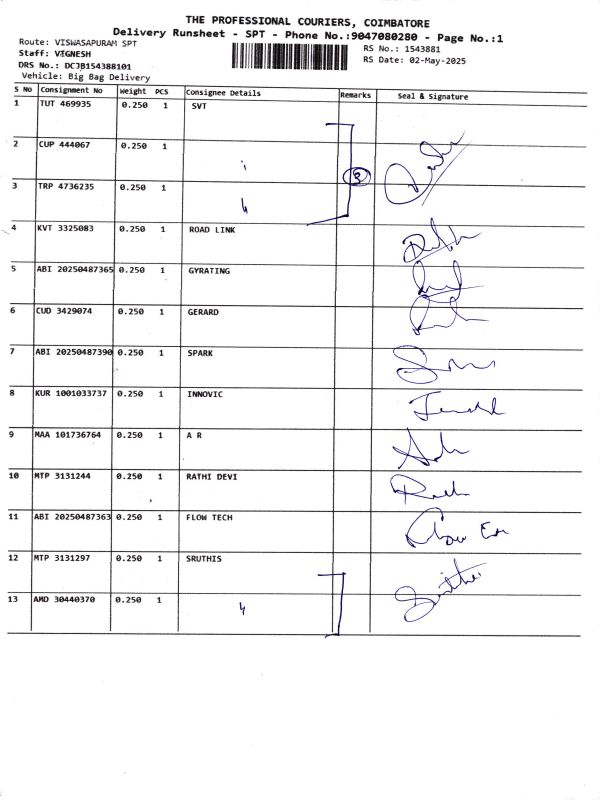 THE PROFESSIONAL COURIERS, COIMBATORE
Delivery Runsheet - SPT - Phone No.:9047080280 - Page No.:1
Route: VISWASAPURAM SPT
Staff: VIGNESH
DRS No.: DCJB154388101
Vehicle: Big Bag Delivery
RS No.: 1543881
RS Date: 02-May-2025
S No Consignment No Weight PCS Consignee Details Remarks Seal & Signature
1 TUT 469935 0.250 1 SVT
2 CUP 444067 0.250 1
3 TRP 4736235 0.250 1 4 3
4 KVT 3325083 0.250 1 ROAD LINK
5 ABI 20250487365 0.250 1 GYRATING
6 CUD 3429074 0.250 1 GERARD
7 ABI 20250487390 0.250 1 SPARK
8 KUR 1001033737 0.250 1 INNOVIC
9 MAA 101736764 0.250 1 A R
10 MTP 3131244 0.250 1 RATHI DEVI
11 ABI 20250487363 0.250 1 FLOW TECH
12 MTP 3131297 0.250 1 SRUTHIS
13 AMD 30440370 0.250 1 4